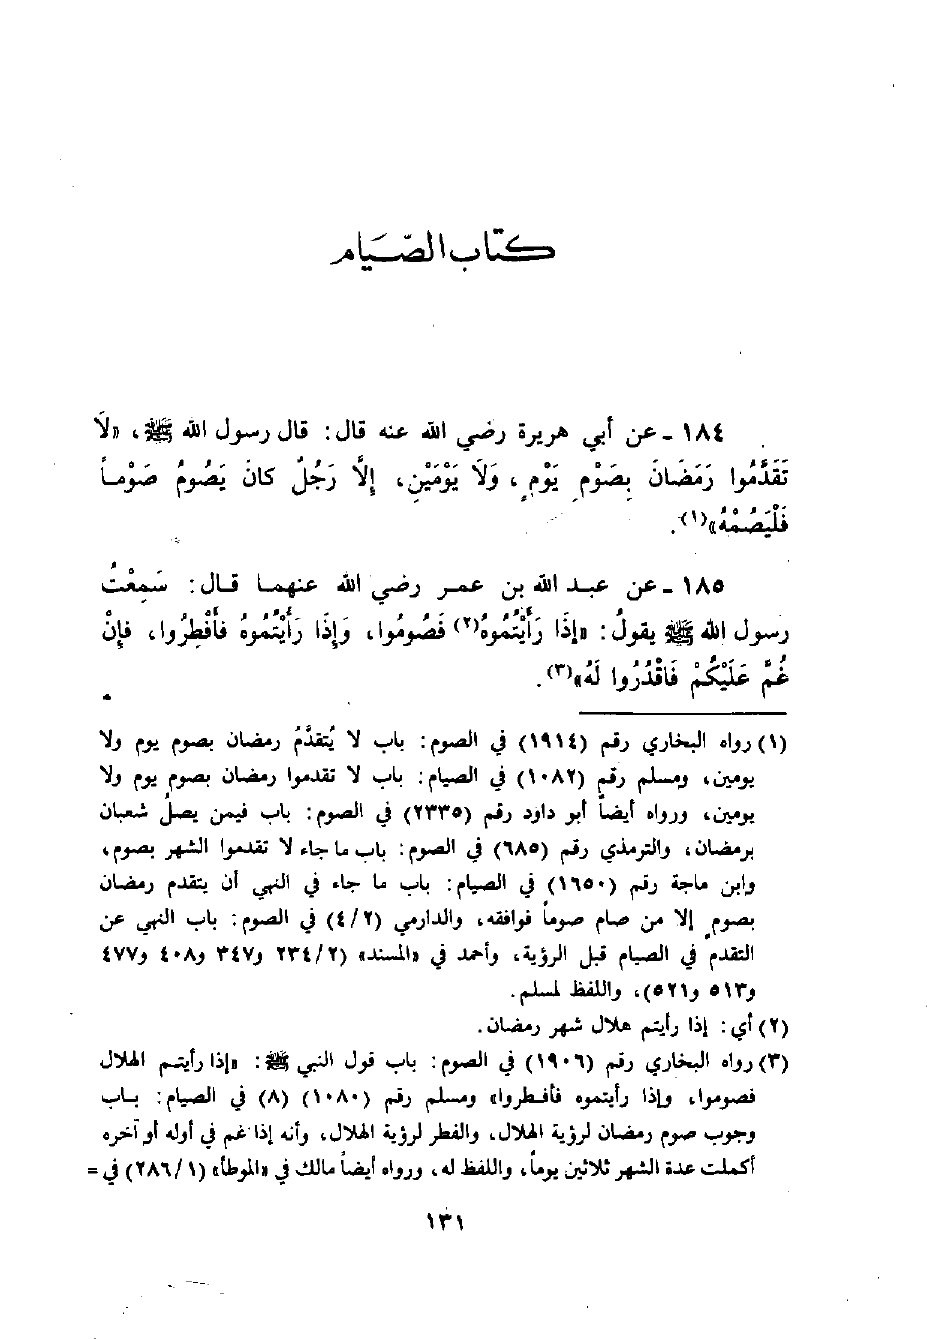 كتاب الصّيَام
١٨٤ ـ عن أبي هريرة رضي الله عنه قال: قال رسول الله ﷺ، «لَا
تَقَدَّمُوا رَمَضَانَ بِصَوْمِ يَوْمٍ، وَلَا يَوْمَيْنِ، إِلَّا رَجُلٌ كانَ يَصُومُ صَوْماً
فَلْيَصُمْهُ»(١).
١٨٥ ـ عن عبد الله بن عمر رضي الله عنهما قال: سَمِعْتُ
رسول الله ﷺ يقولُ: «إِذَا رَأَيْتُموهُ(٢) فَصُومُوا، وَإِذَا رَأَيْتُموهُ فَأَفْطِرُوا، فإِنْ
غُمَّ عَلَيْكُمْ فَاقْدُرُوا لَهُ»(٣).
(١) رواه البخاري رقم (١٩١٤) في الصوم: باب لا يُتقدَّمُ رمضان بصوم يوم ولا
يومين، ومسلم رقم (١٠٨٢) في الصيام: باب لا تقدموا رمضان بصوم يوم ولا
يومين، ورواه أيضاً أبو داود رقم (٢٣٣٥) في الصوم: باب فيمن يصلُ شعبان
برمضان، والترمذي رقم (٦٨٥) في الصوم: باب ما جاء لا تقدموا الشهر بصوم،
وابن ماجة رقم (١٦٥٠) في الصيام: باب ما جاء في النهي أن يتقدم رمضان
بصومٍ إلا من صام صوماً فوافقه، والدارمي (٤/٢) في الصوم: باب النهي عن
التقدم في الصيام قبل الرؤية، وأحمد في «المسند» (٢٣٤/٢ و٣٤٧ و٤٠٨ و٤٧٧
و٥١٣ و٥٢١)، واللفظ لمسلم.
(٢) أي: إذا رأيتم هلال شهر رمضان.
(٣) رواه البخاري رقم (١٩٠٦) في الصوم: باب قول النبي ﷺ: «إذا رأيتم الهلال
فصوموا، وإذا رأيتموه فأفطروا» ومسلم رقم (١٠٨٠) (٨) في الصيام: باب
وجوب صوم رمضان لرؤية الهلال، والفطر لرؤية الهلال، وأنه إذا غم في أوله أو آخره
أكملت عدة الشهر ثلاثين يوماً، واللفظ له، ورواه أيضاً مالك في «الموطأ» (٢٨٦/١) في =
١٣١